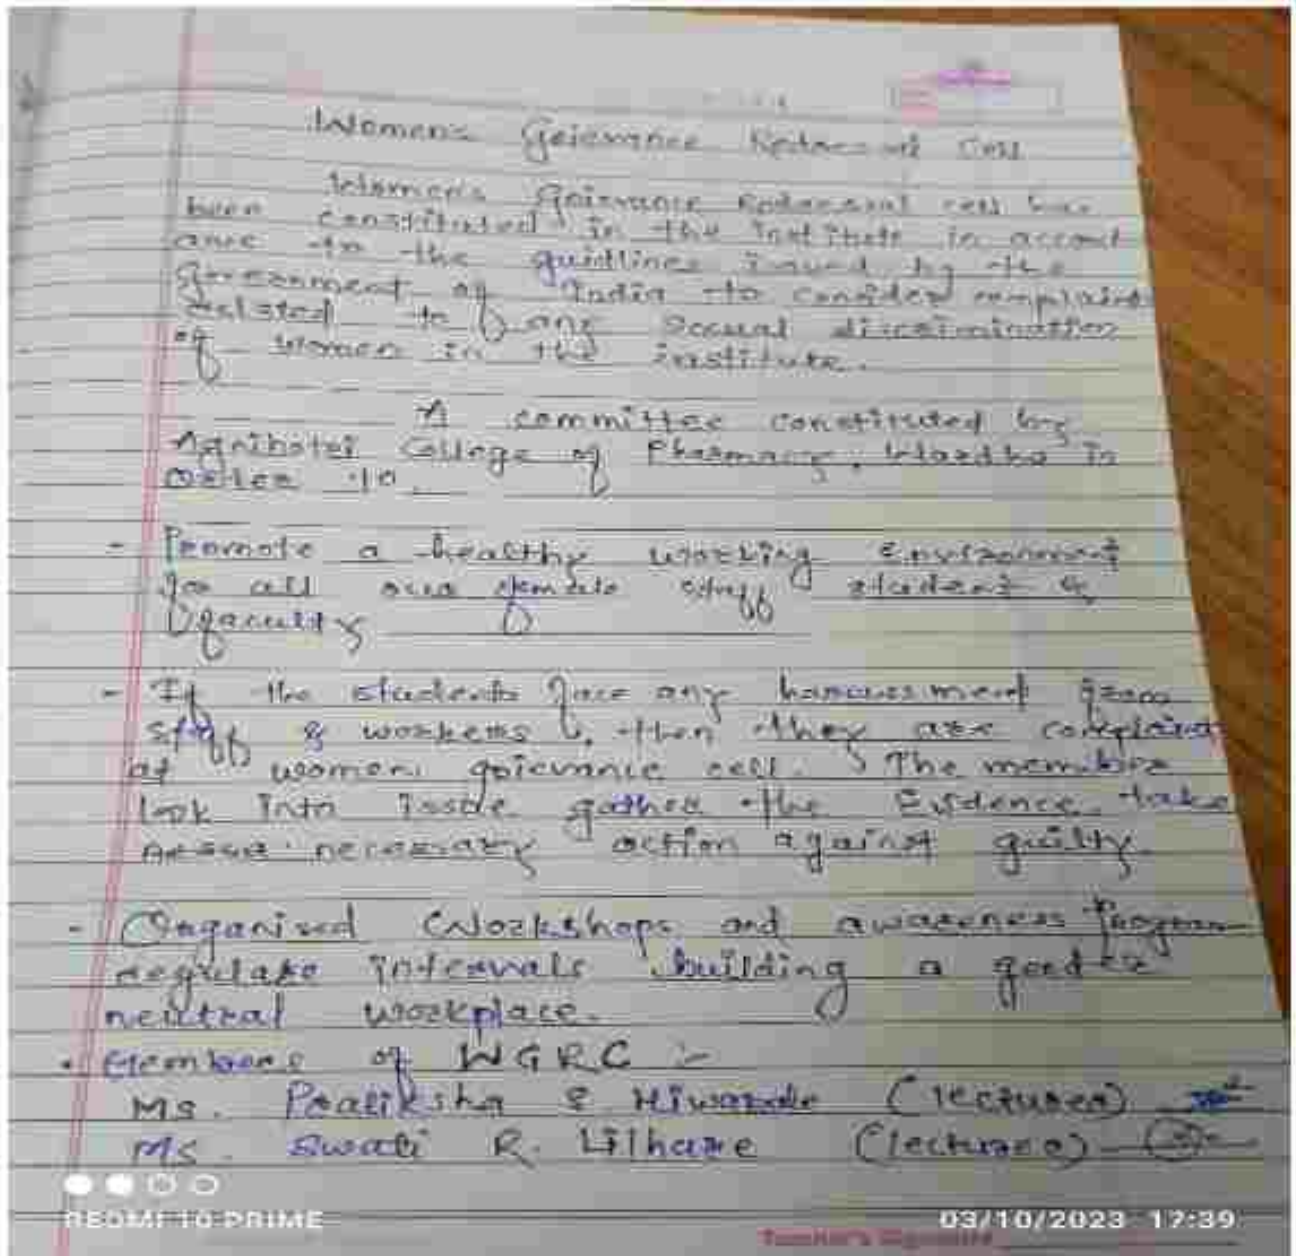 Women's Grievance Redressal Cell
Women's Grievance Redressal cell has
been constituted in the institute in accord
ance to the guidlines issued by the
Government of India to consider complaint
related to any sexual discrimination
of women in the institute.
A committee constituted by
Agnihotri College of Pharmacy, Wardha in
Order to
- Promote a healthy working Environment
for all our female staff student &
faculty
- If the students face any harrassment from
staff & workers, then they are complaint
at women grievance cell. The members
look into issue gather the Evidence take
necessary action against guilty.
- Organised Workshops and awareness Program
regular intervals building a gender
neutral workplace.
Members of WGRC :-
Ms. Pratiksha Hiwarde (lecturer)
Ms. Swati R. Lilhare (lecturer)
REDMI 10 PRIME
03/10/2023 17:39
Teacher's Signature